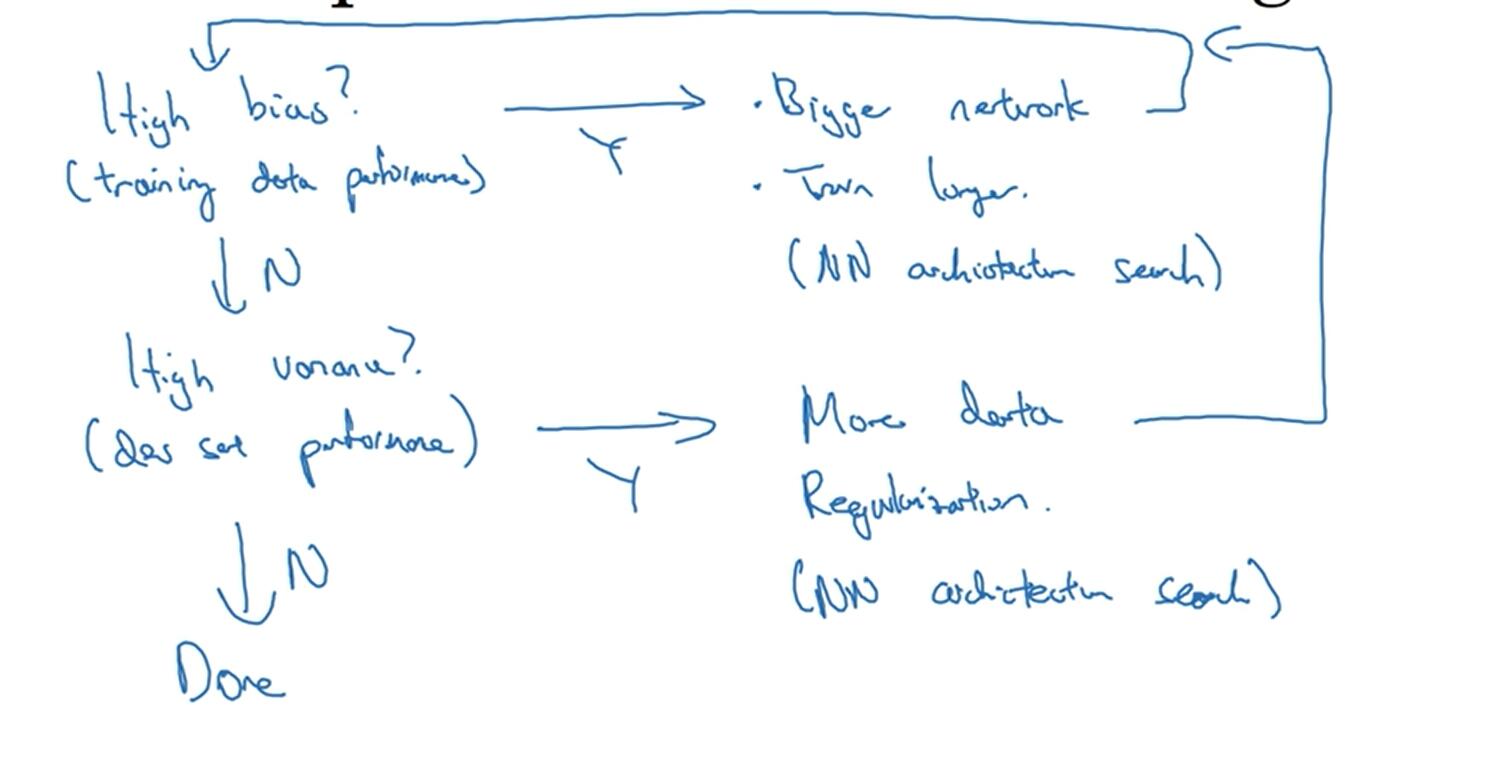 High bias?
(training data performance)
Y
· Bigge network
· Train longer.
(NN archiotectur search)
N
High variance?
(dev set performance)
Y
More data
Regularization.
(NN architectur search)
N
Done